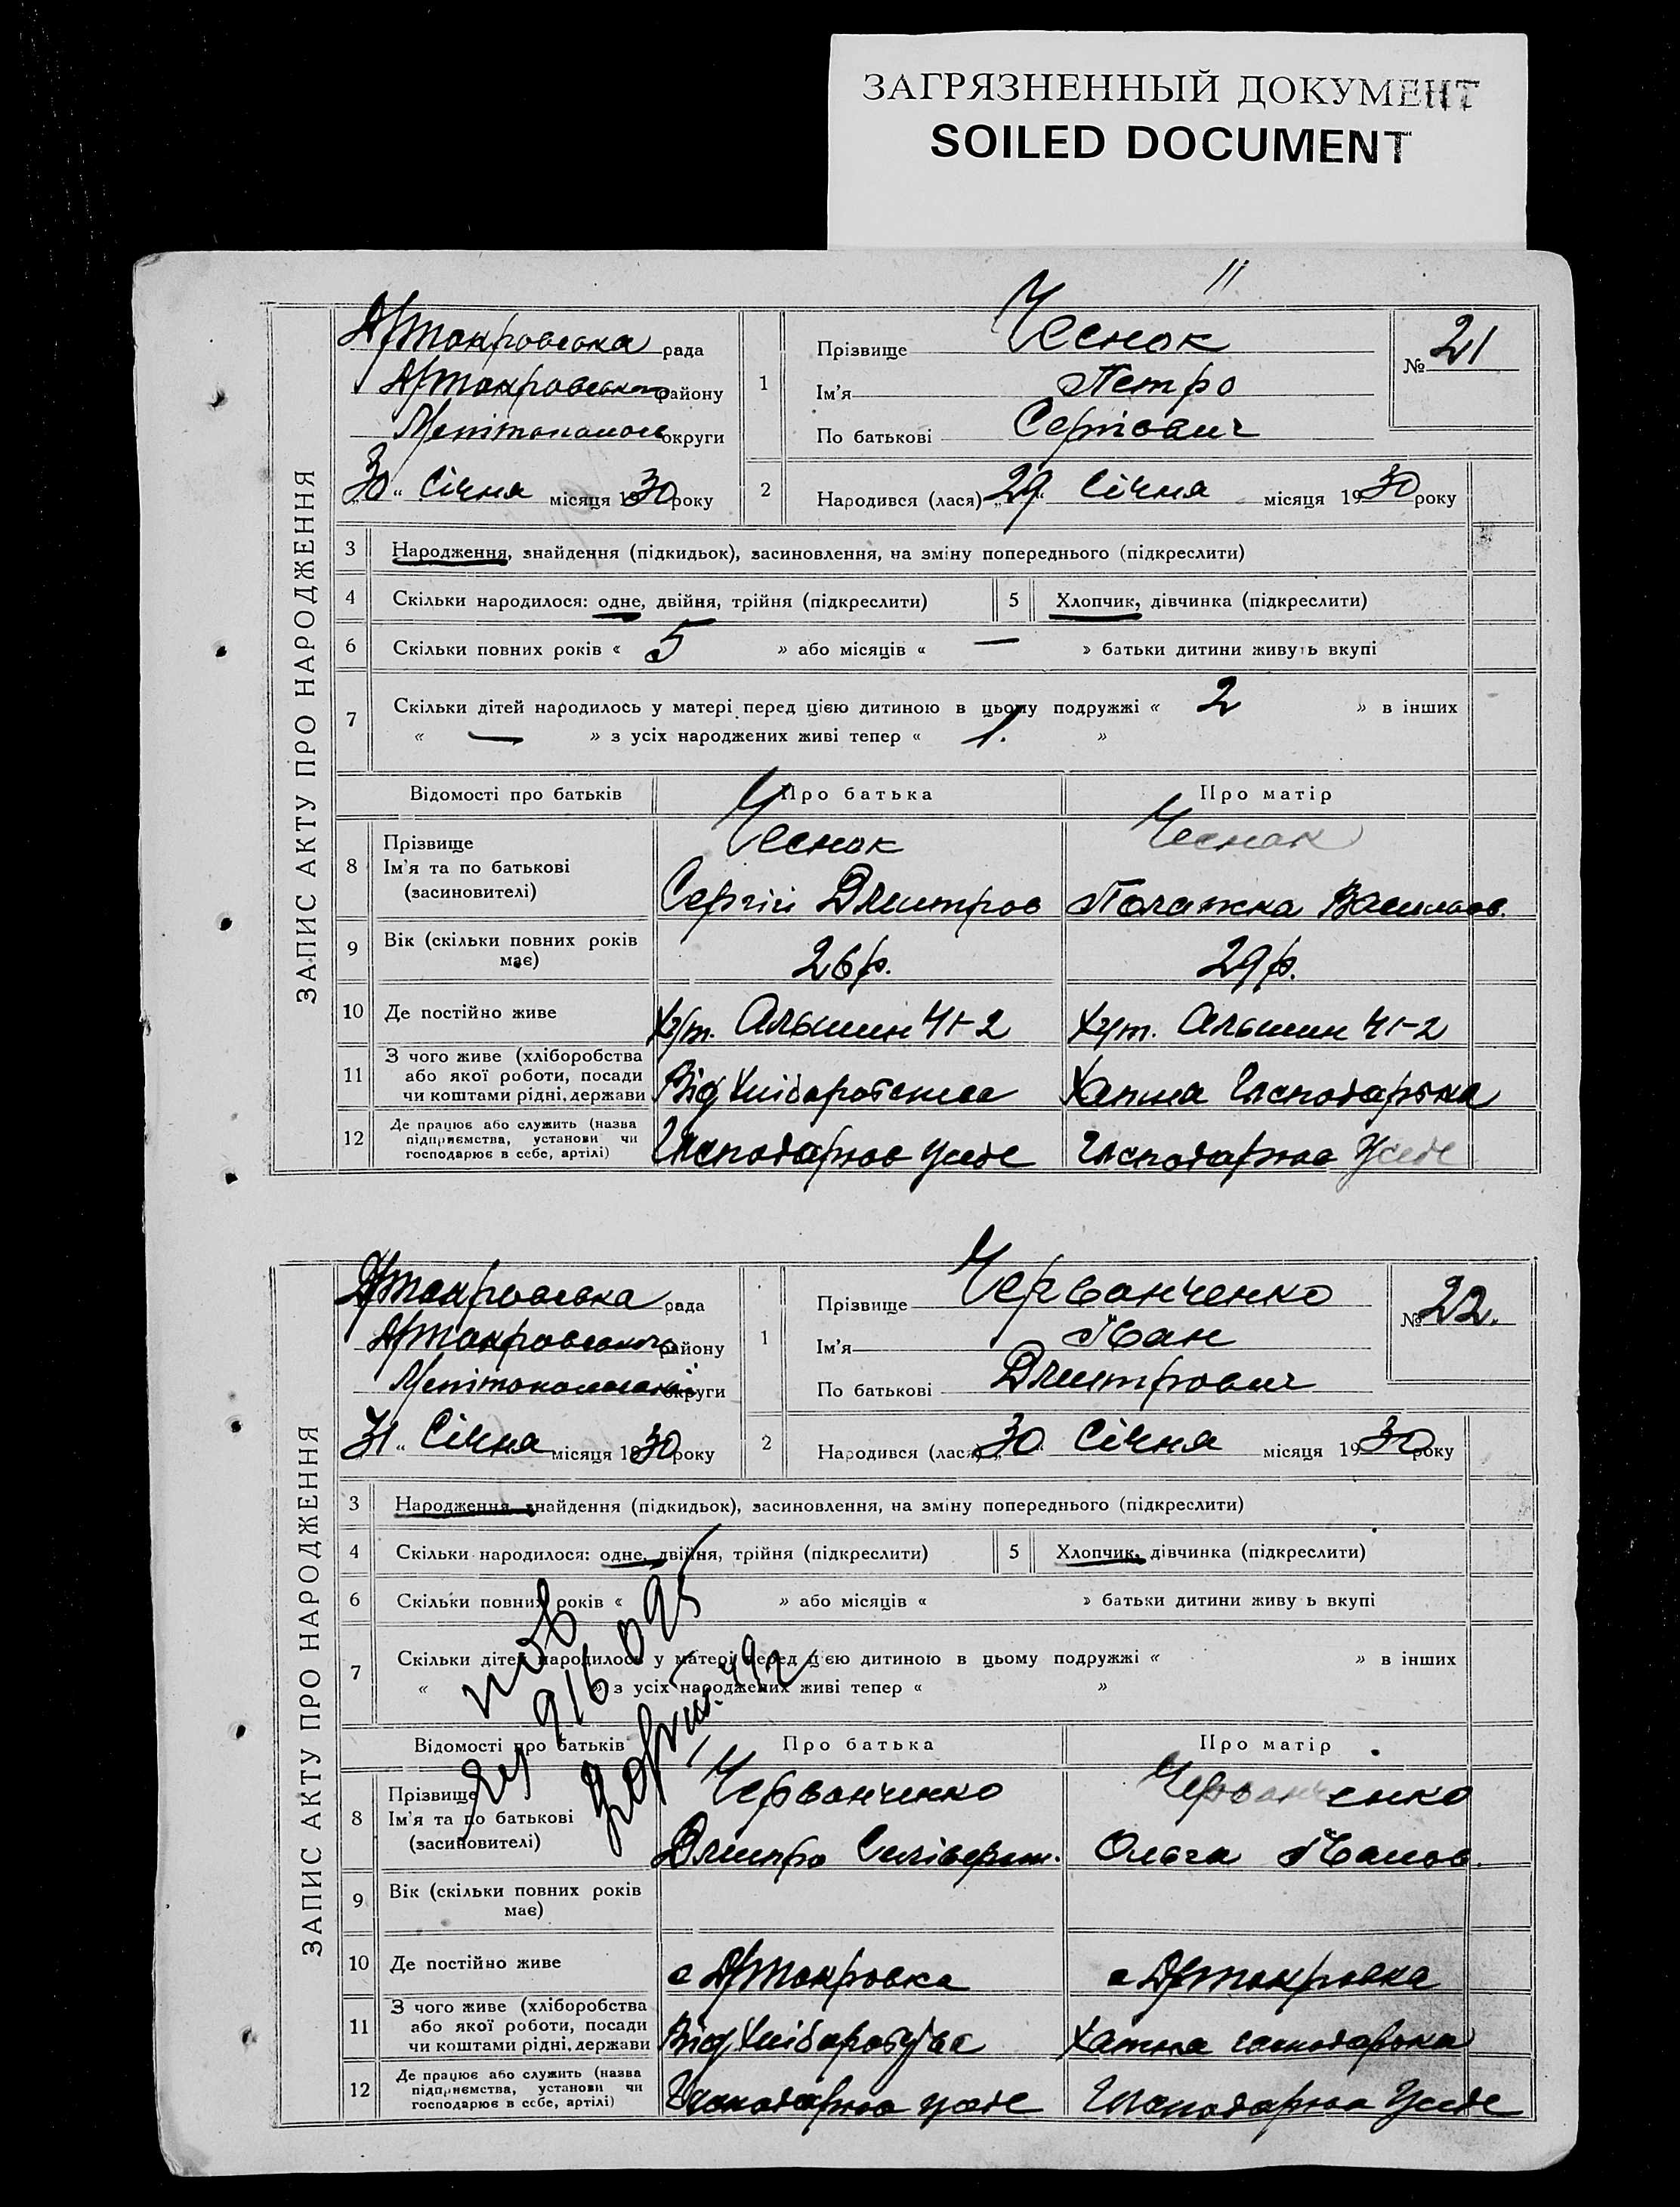 ЗАГРЯЗНЕННЫЙ ДОКУМЕНТ
SOILED DOCUMENT
11
ЗАПИС АКТУ ПРО НАРОДЖЕННЯ
рада
району
округи
„30“ Січня місяця 1930 року
1
Прізвище Чеснок
Ім'я Петро
По батькові Сергієвич
№ 21
2
Народився (лася) „29“ Січня місяця 1930 року
3 Народження, знайдення (підкидьок), засиновлення, на зміну попереднього (підкреслити)
4 Скільки народилося: одне, двійня, трійня (підкреслити)
5 Хлопчик, дівчинка (підкреслити)
6 Скільки повних років « 5 » або місяців « — » батьки дитини живуть вкупі
7 Скільки дітей народилось у матері перед цією дитиною в цьому подружжі « 2 » в інших
« — » з усіх народжених живі тепер « 1. »
Відомості про батьків Про батька Про матір
8 Прізвище Чеснок Чеснок
Ім'я та по батькові
(засиновителі) Сергій Дмитров
9 Вік (скільки повних років
має) 26 р. 29 р.
10 Де постійно живе Хут. Хут.
11 З чого живе (хліборобства
або якої роботи, посади
чи коштами рідні, держави Від Хліборобства Хатня Господарка
12 Де працює або служить (назва
підприємства, установи чи
господарює в себе, артілі) Господарює у себе Господарює у себе
ЗАПИС АКТУ ПРО НАРОДЖЕННЯ
рада
району
округи
31 “ Січня місяця 1930 року
1
Прізвище Черванченко
Ім'я Іван
По батькові Дмитрович
№ 22.
2
Народився (лася) „30 Січня місяця 1930 року
3 Народження, знайдення (підкидьок), засиновлення, на зміну попереднього (підкреслити)
4 Скільки народилося: одне, двійня, трійня (підкреслити)
5 Хлопчик, дівчинка (підкреслити)
6 Скільки повних років « » або місяців « » батьки дитини живуть вкупі
7 Скільки дітей народилось у матері перед цією дитиною в цьому подружжі « » в інших
« » з усіх народжених живі тепер « »
Відомості про батьків Про батька Про матір
8 Прізвище Черванченко Черванченко
Ім'я та по батькові
(засиновителі) Дмитро Ольга Іванов.
9 Вік (скільки повних років
має)
10 Де постійно живе
11 З чого живе (хліборобства
або якої роботи, посади
чи коштами рідні, держави Від Хліборобства Хатня господарка
12 Де працює або служить (назва
підприємства, установи чи
господарює в себе, артілі) Господарює у себе Господарює у себе